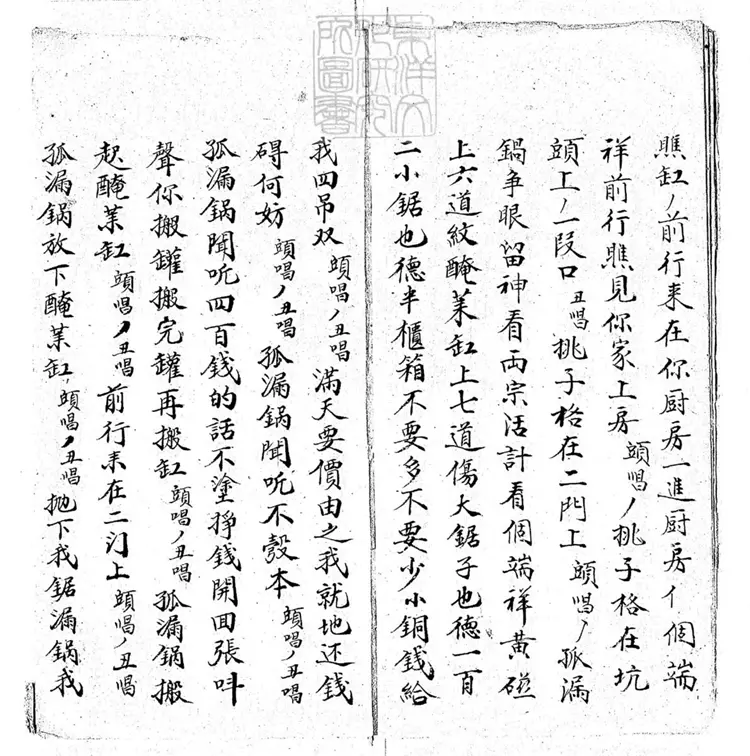 瞧缸丿前行来在你厨房一進厨房亻個端
祥前行瞧見你家上房 頭唱丿挑子格在坑
頭上丿一段口 丑唱 挑子格在二門上 頭唱丿孤漏
鍋争眼留神看両宗活計看個端祥黄磁
上六道紋醃菜缸上七道傷大鋸子也德一百
二小鋸也德半櫃箱不要多不要少小銅錢給
我四吊双 頭唱丿丑唱 满天要價由之我就地还錢
碍何妨 頭唱丿丑唱 孤漏鍋聞听不彀本 頭唱丿丑唱
孤漏鍋聞听四百錢的話不塗掙錢開回張呌
聲你搬罐搬完罐再搬缸 頭唱丿丑唱 孤漏鍋搬
起醃菜缸 頭唱丿丑唱 前行来在二门上 頭唱丿丑唱
孤漏鍋放下醃菜缸 頭唱丿丑唱 抛下我鋸漏鍋我
東洋文
化研究
所圖書